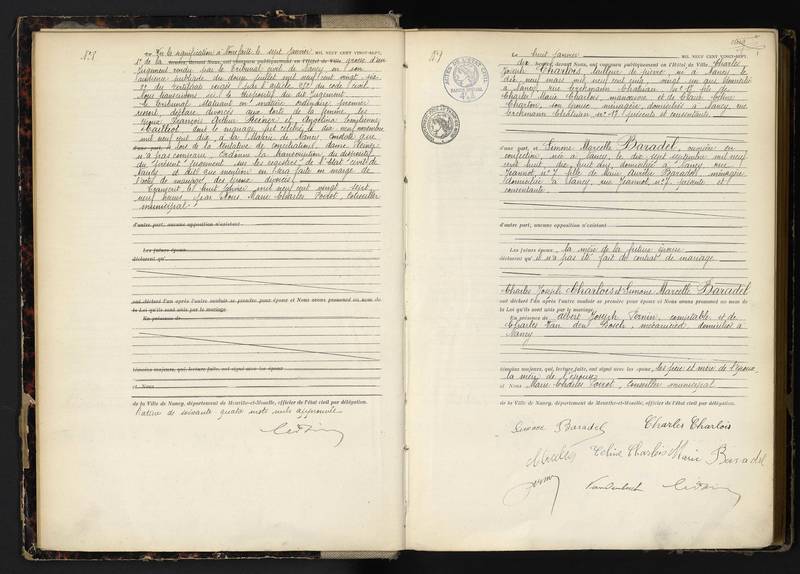 N° 1
de la ... devant Nous, ont comparu publiquement en l'Hôtel de Ville, grosse d'un
jugement rendu par le tribunal civil de Nancy en son
audience publique du douze juillet mil neuf cent vingt six
2° du certificat exigé par l'article 252 du code civil.
Nous transcrivons ici le dispositif du dit jugement.
Le tribunal statuant en matière ordinaire premier
ressort, déclare divorcés aux torts de la femme les
époux François Arthur
dont le mariage fut célébré le dix neuf novembre
mil neuf cent dix à la Mairie de Nancy constate que
d'une part, lors de la tentative de conciliation, dame
n'a pas comparu. Ordonne la transcription du dispositif
du présent jugement sur les registres de l'état civil de
Nancy et dit que mention en sera faite en marge de
l'acte de mariage des époux divorcés.
Transcrit le huit janvier mil neuf cent vingt-sept,
neuf heures par Nous Marie Charles Poirot, conseiller
municipal.
d'autre part, aucune opposition n'existant
Les futurs époux
déclarent qu'
ont déclaré l'un après l'autre vouloir se prendre pour époux et Nous avons prononcé au nom de
la Loi qu'ils sont unis par le mariage.
En présence de
témoins majeurs, qui, lecture faite, ont signé avec les époux
et Nous
de la Ville de Nancy, département de Meurthe-et-Moselle, officier de l'état civil par délégation.
Rature de soixante quatre mots nuls approuvée
Le huit janvier MIL NEUF CENT VINGT-SEPT,
dix heures, devant Nous, ont comparu publiquement en l'Hôtel de Ville, Charles
Joseph Charlois, tailleur de pierre, né à Nancy le
dix neuf mars mil neuf cent cinq, vingt un ans, domicilié
à Nancy, rue Erckmann Chatrian n° 17, fils de
Charles Marie Charlois, manœuvre, et de Céline
son épouse, ménagère, domiciliés à Nancy, rue
Erckmann Chatrian n° 17, présents et consentants.
d'une part, et Simone Marcelle Baradel, ouvrière en
confection, née à Nancy, le dix sept septembre mil neuf
cent huit, dix huit ans, domiciliée à Nancy, rue
Jeannot, n° 7, fille de Marie Aurélie Baradel, ménagère
domiciliée à Nancy, rue Jeannot, n° 7, présente et
consentante.
d'autre part, aucune opposition n'existant
Les futurs époux, la mère de la future épouse
déclarent qu'il n'a pas été fait de contrat de mariage
Charles Joseph Charlois et Simone Marcelle Baradel
ont déclaré l'un après l'autre vouloir se prendre pour époux et Nous avons prononcé au nom de
la Loi qu'ils sont unis par le mariage.
En présence de Albert Joseph Pernin, comptable et de
Charles Van den Bosch, mécanicien, domiciliés à
Nancy
témoins majeurs, qui, lecture faite, ont signé avec les époux, les père et mère de l'époux,
la mère de l'épouse
et Nous Marie Charles Poirot, conseiller municipal
de la Ville de Nancy, département de Meurthe-et-Moselle, officier de l'état civil par délégation.
Simone Baradel Charles Charlois
Céline Charlois Marie Baradel
Vandenbosch